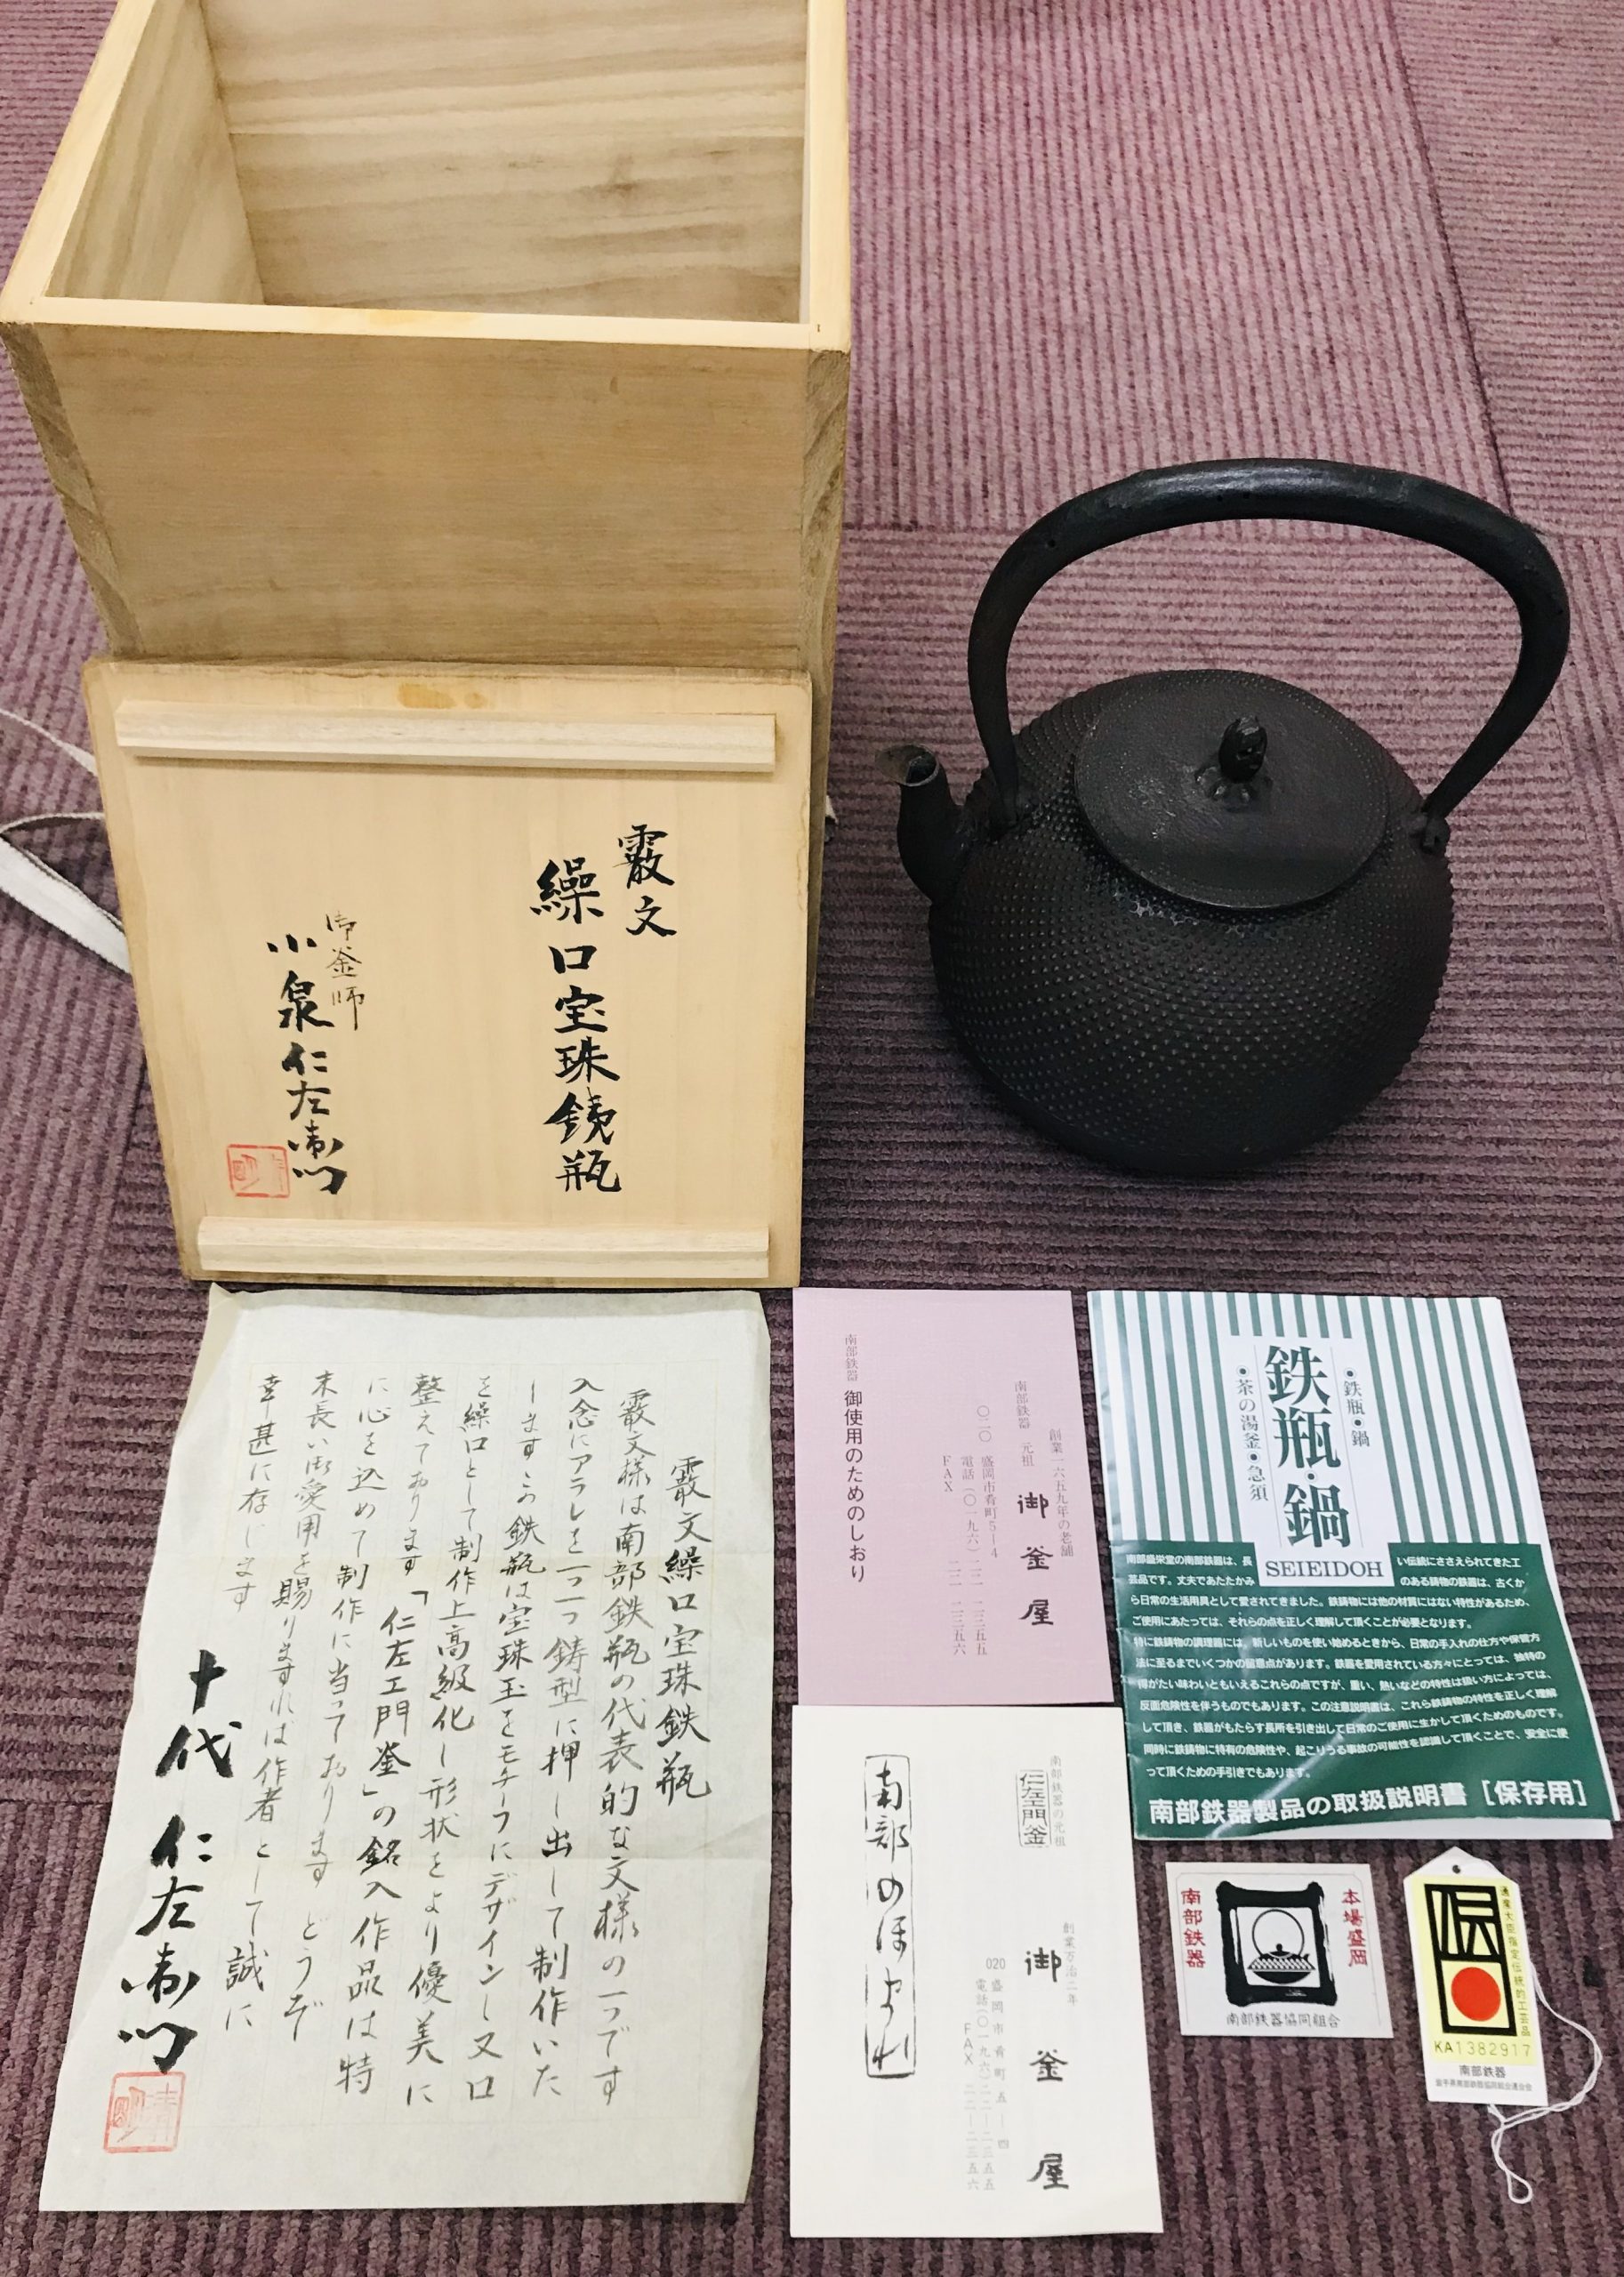 霰文
繰口宝珠鉄瓶
御釜師
小泉仁左衛門
霰文繰口宝珠鉄瓶
霰文様は南部鉄瓶の代表的な文様の一つです
入念にアラレを一つ一つ鋳型に押し出して制作いた
します この鉄瓶は宝珠玉をモチーフにデザインし又口
を繰口として制作上高級化し形状をより優美に
整えてあります「仁左エ門釜」の銘入作品は特
に心を込めて制作に当っております どうぞ
末長い御愛用を賜りますれば作者として誠に
幸甚に存じます
十代 仁左衛門
創業一六五九年の老舗
南部鉄器 元祖 御釜屋
〇二〇 盛岡市肴町5-4
電話(〇一九六)二二-二三五五
FAX 二二-二三五六
南部鉄器 御使用のためのしおり
南部鉄器の元祖
仁左エ門釜
創業万治二年
御釜屋
020 盛岡市肴町五-四
電話(〇一九六)二二-二三五五
FAX 二二-二三五六
南部のほまれ
●鉄瓶●鍋
鉄瓶・鍋
●茶の湯釜●急須
SEIEIDOH
南部盛栄堂の南部鉄器は、長い伝統にささえられてきた工
芸品です。丈夫であたたかみのある鋳物の鉄器は、古くか
ら日常の生活用具として愛されてきました。鉄鋳物には他の材質にはない特性があるため、
ご使用にあたっては、それらの点を正しく理解して頂くことが必要となります。
特に鉄鋳物の調理器には、新しいものを使い始めるときから、日常の手入れの仕方や保管方
法に至るまでいくつかの留意点があります。鉄器を愛用されている方々にとっては、独特の
得がたい味わいともいえるこれらの点ですが、重い、熱いなどの特性は扱い方によっては、
反面危険性を伴うものでもあります。この注意説明書は、これら鉄鋳物の特性を正しく理解
して頂き、鉄器がもたらす長所を引き出して日常のご使用に生かして頂くためのものです。
同時に鉄鋳物に特有の危険性や、起こりうる事故の可能性を認識して頂くことで、安全に使
って頂くための手引きでもあります。
南部鉄器製品の取扱説明書［保存用］
本場盛岡
南部鉄器
南部鉄器協同組合
通産大臣指定伝統的工芸品
KA1382917
南部鉄器
岩手県南部鉄器協同組合連合会